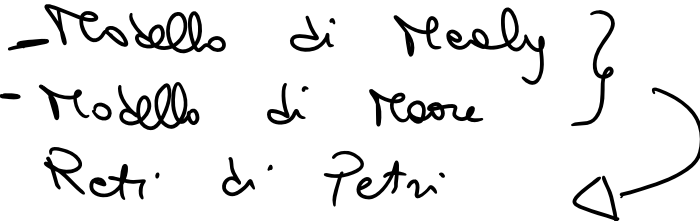 - Modello di Mealy
- Modello di Moore
Reti di Petri